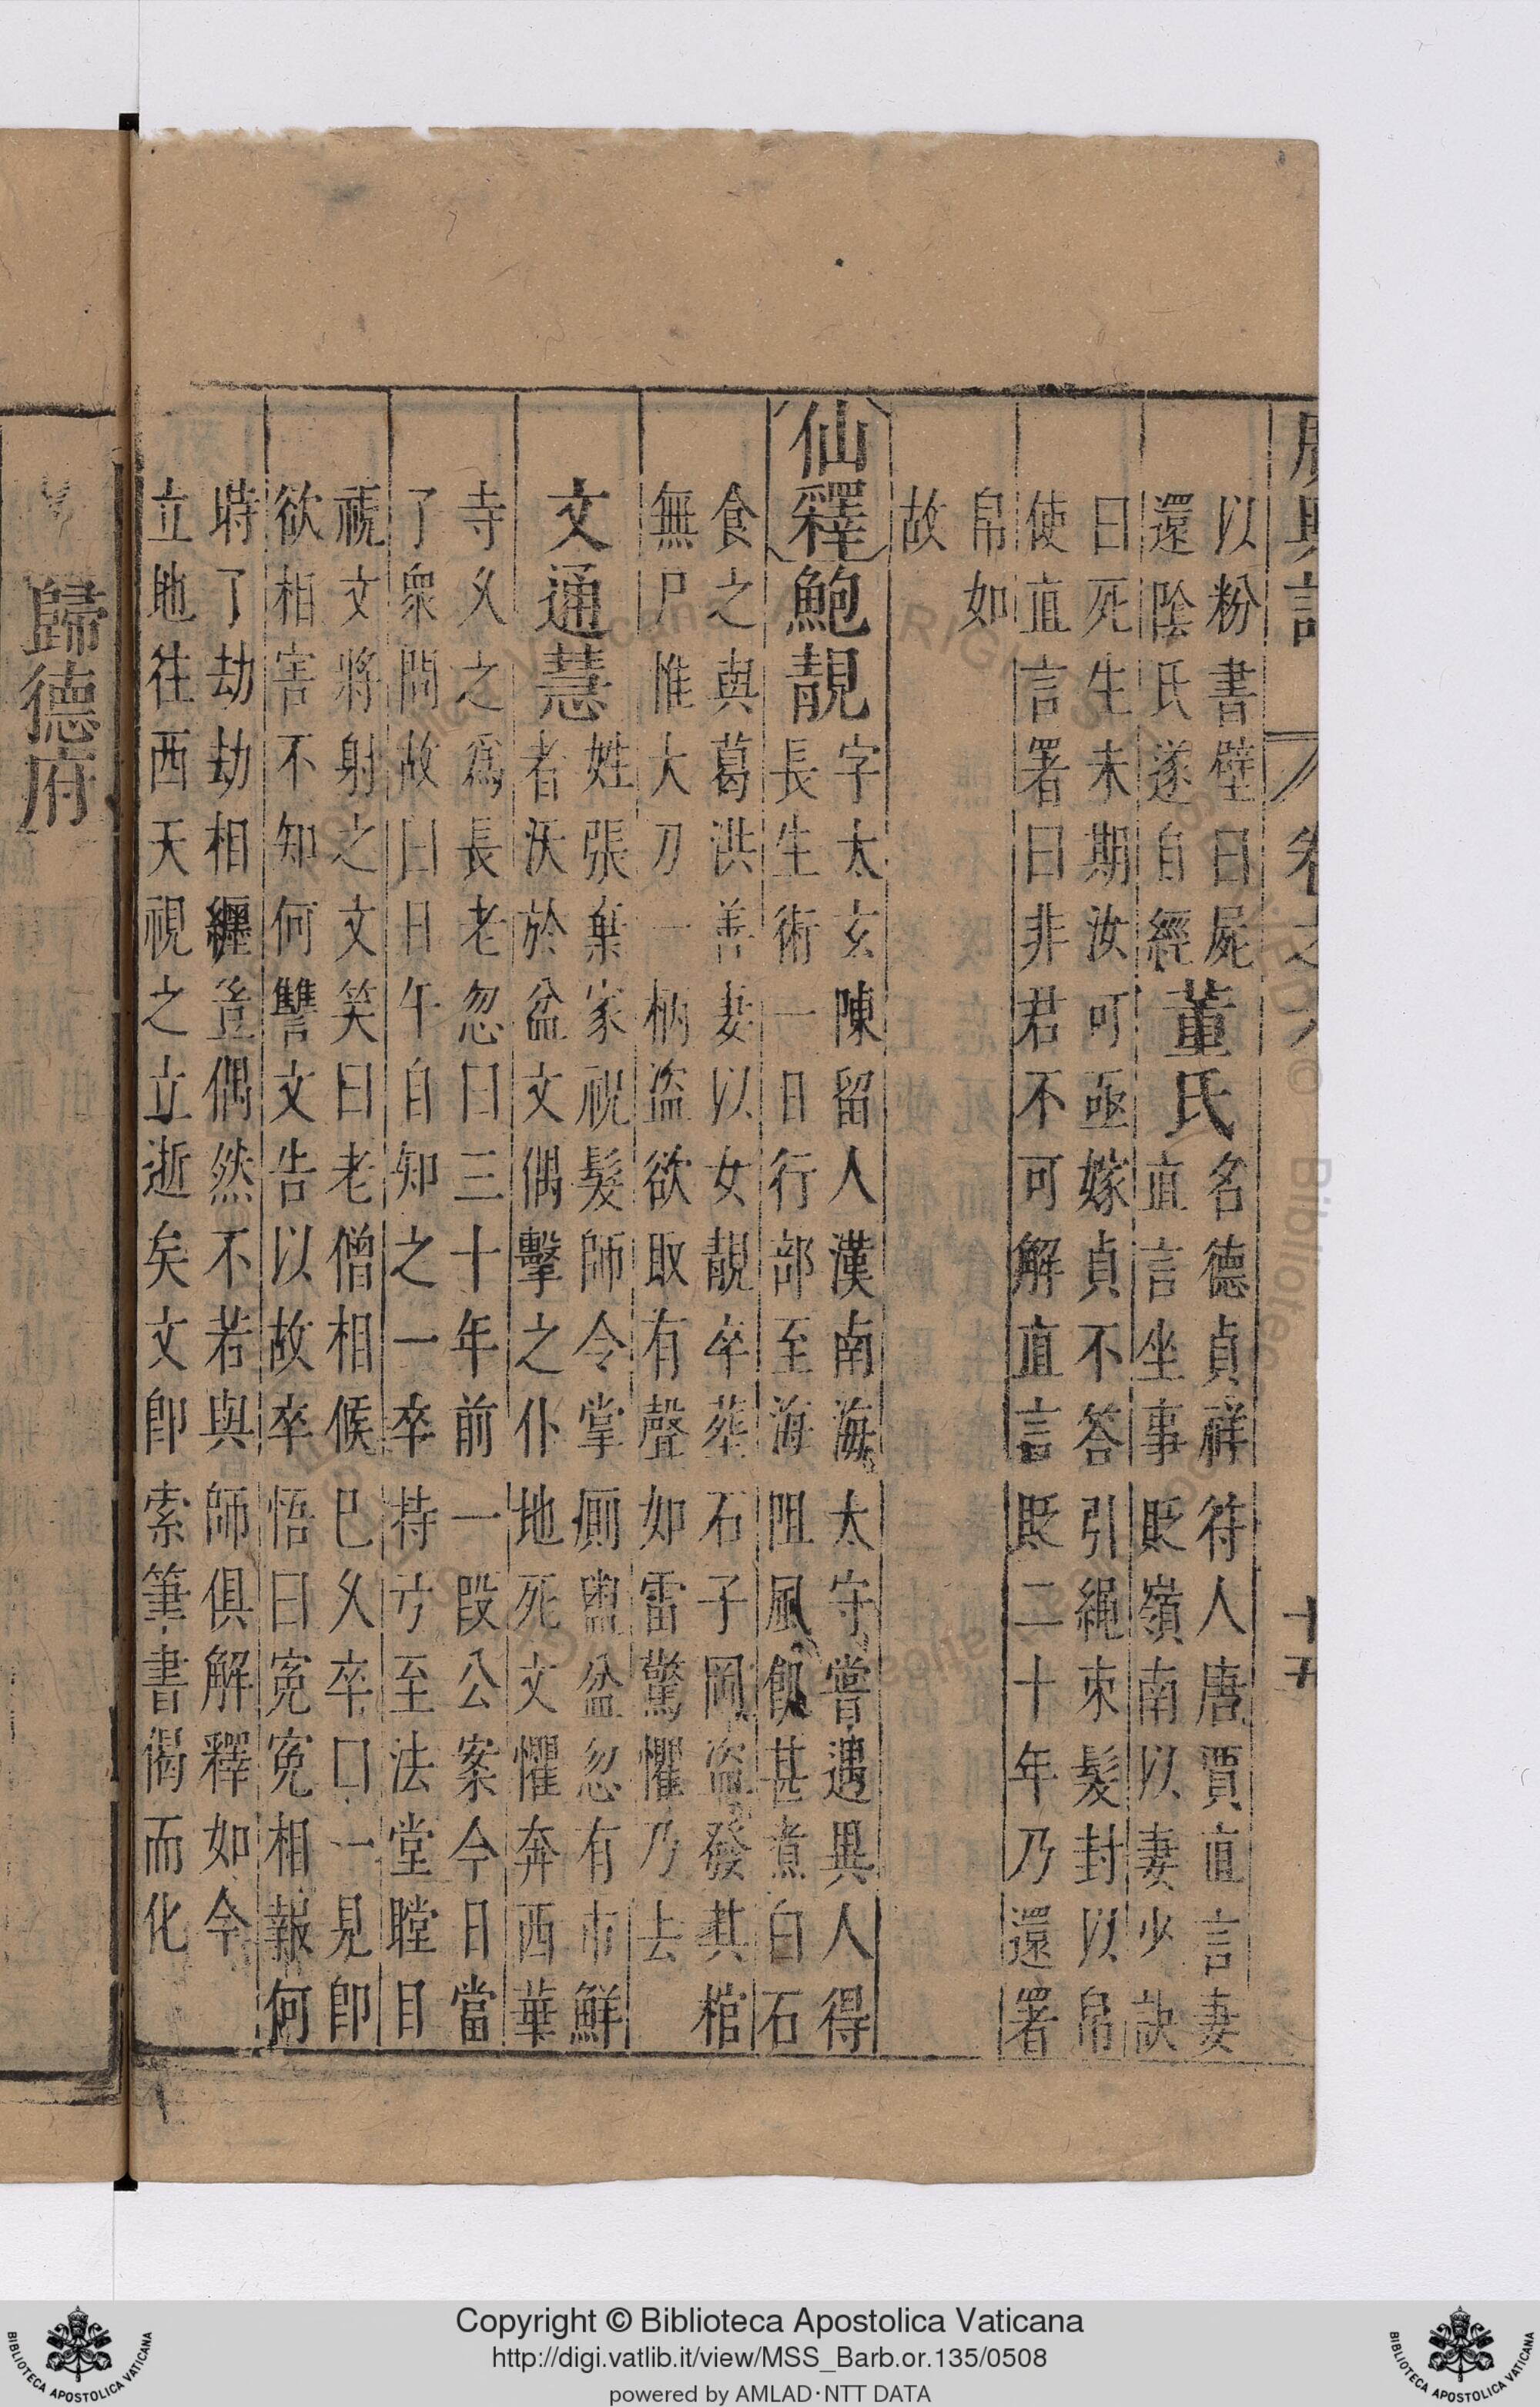 廣輿記 卷之六 十五
以粉書壁曰屍
還陰氏遂自經
董氏
名德貞祥符人唐賈直言妻
直言坐事貶嶺南以妻少訣
曰死生未期汝可亟嫁貞不答引繩束髮封以帛
使直言署曰非君不可解直言貶二十年乃還署
帛如
故
仙釋
鮑靚
字太玄陳留人漢南海太守嘗遇異人得
長生術一日行部至海阻風飢甚煮白石
食之與葛洪善妻以女靚卒葬石子岡盜發其棺
無尸惟大刀一柄盜欲取有聲如雷驚懼乃去
文通慧
姓張棄家祝髮師令掌廁盥盆忽有市鮮
者沃於盆文偶擊之仆地死文懼奔西華
寺久之為長老忽曰三十年前一段公案今日當
了衆問故曰日午自知之一卒持弓至法堂瞠目
視文將射之文笑曰老僧相候已久卒曰一見即
欲相害不知何讐文告以故卒悟曰冤冤相報何
時了劫劫相纒豈偶然不若與師俱解釋如今
立地往西天視之立逝矣文即索筆書偈而化
歸德府
Copyright © Biblioteca Apostolica Vaticana
http://digi.vatlib.it/view/MSS_Barb.or.135/0508
powered by AMLAD·NTT DATA
BIBLIOTECA APOSTOLICA VATICANA
BIBLIOTECA APOSTOLICA VATICANA